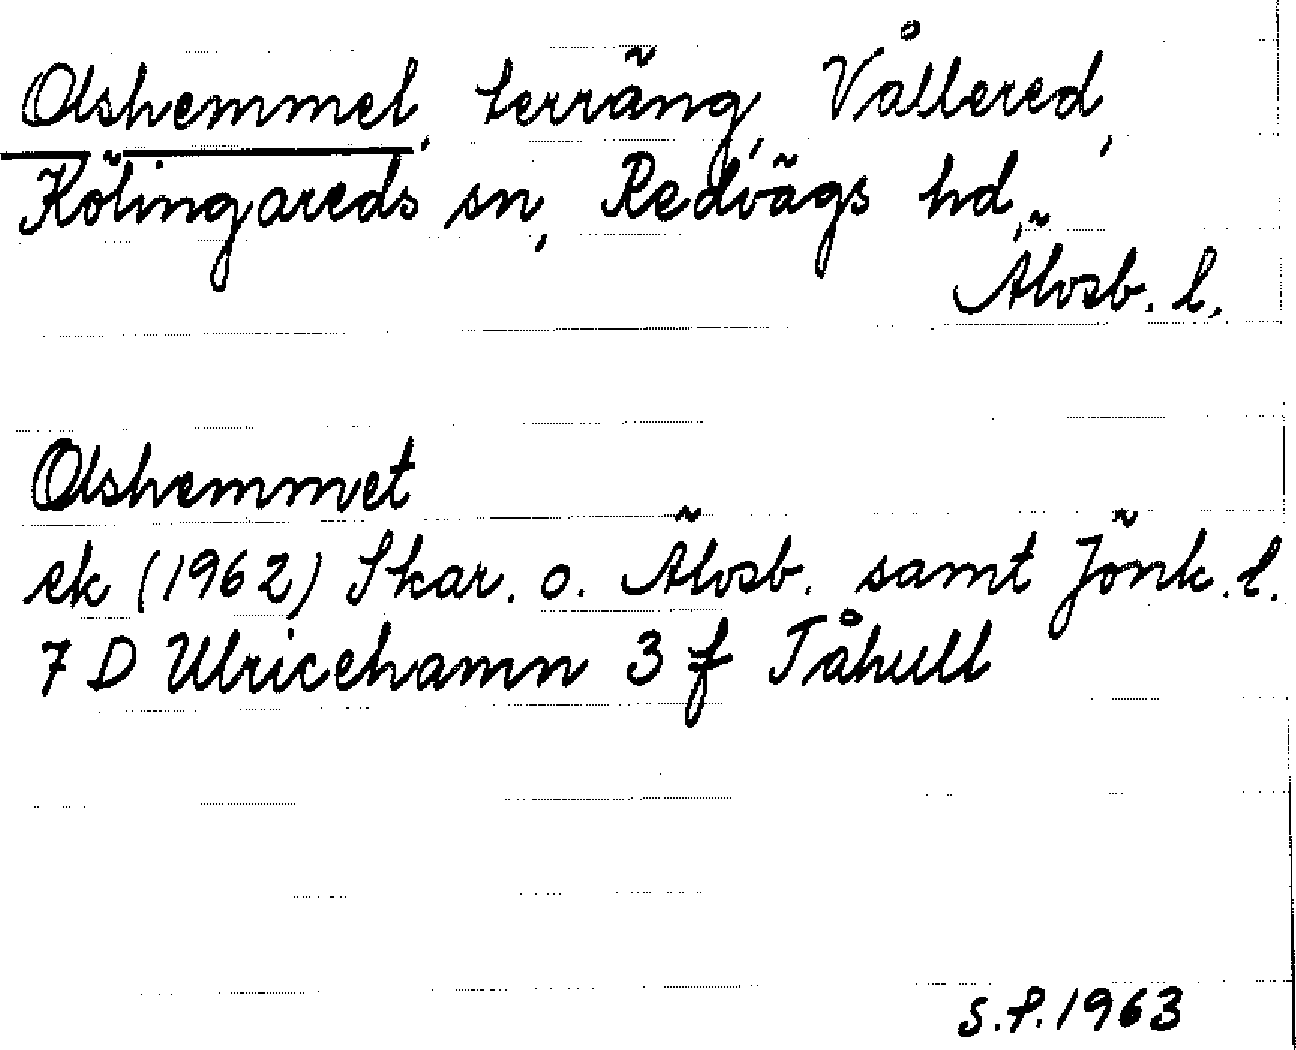 Olshemmet, terräng, Vållered,
Kölingareds sn, Redvägs hd,
Älvsb. l.
Olshemmet
ek (1962) Skar. o. Älvsb. samt Jönk. l.
7 D Ulricehamn 3 f Tåhull
S.P. 1963